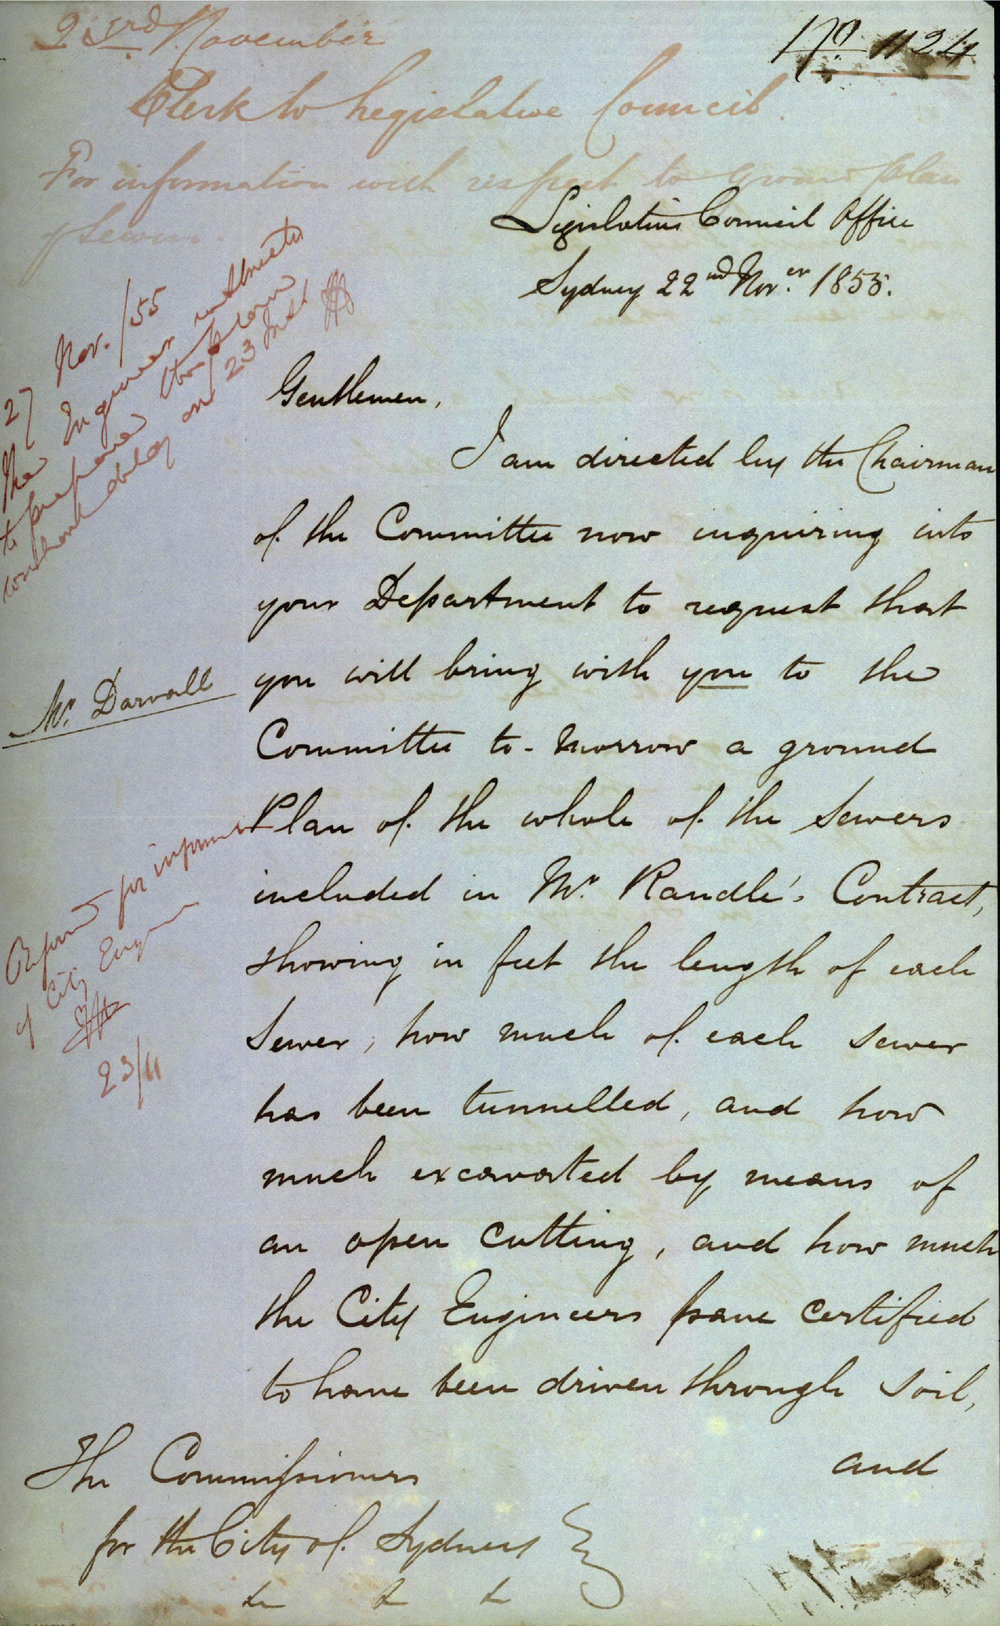 23rd November
No 1124
Clerk to Legislative Council.
For information with respect to ground plan
of Sewers.
Legislative Council Office
Sydney 22nd Nov.er 1855.
27 Nov./55
The Engineer instructed
to prepare the plan
without delay on 23 Inst
Gentlemen,
I am directed by the Chairman
of the Committee now inquiring into
your Department to request that
you will bring with you to the
Mr. Darvall
Committee to-morrow a ground
Plan of the whole of the Sewers
included in Mr Randle's Contract,
showing in feet the length of each
Sewer, how much of each sewer
has been tunnelled, and how
much excavated by means of
an open cutting, and how much
the City Engineers have certified
to have been driven through soil,
and
for
of City Engineer
23/11
The Commissioners
for the City of Sydney